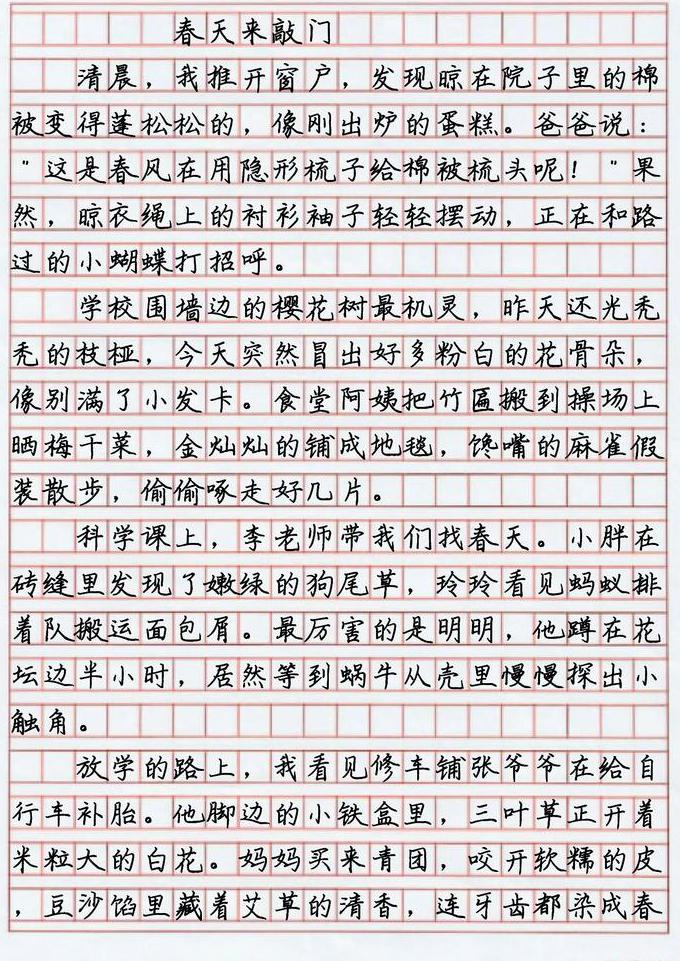 春天来敲门
清晨，我推开窗户，发现晾在院子里的棉
被变得蓬松松的，像刚出炉的蛋糕。爸爸说：
"这是春风在用隐形梳子给棉被梳头呢！"果
然，晾衣绳上的衬衫袖子轻轻摆动，正在和路
过的小蝴蝶打招呼。
学校围墙边的樱花树最机灵，昨天还光秃
秃的枝桠，今天突然冒出好多粉白的花骨朵，
像别满了小发卡。食堂阿姨把竹匾搬到操场上
晒梅干菜，金灿灿的铺成地毯，馋嘴的麻雀假
装散步，偷偷啄走好几片。
科学课上，李老师带我们找春天。小胖在
砖缝里发现了嫩绿的狗尾草，玲玲看见蚂蚁排
着队搬运面包屑。最厉害的是明明，他蹲在花
坛边半小时，居然等到蜗牛从壳里慢慢探出小
触角。
放学的路上，我看见修车铺张爷爷在给自
行车补胎。他脚边的小铁盒里，三叶草正开着
米粒大的白花。妈妈买来青团，咬开软糯的皮
，豆沙馅里藏着艾草的清香，连牙齿都染成春